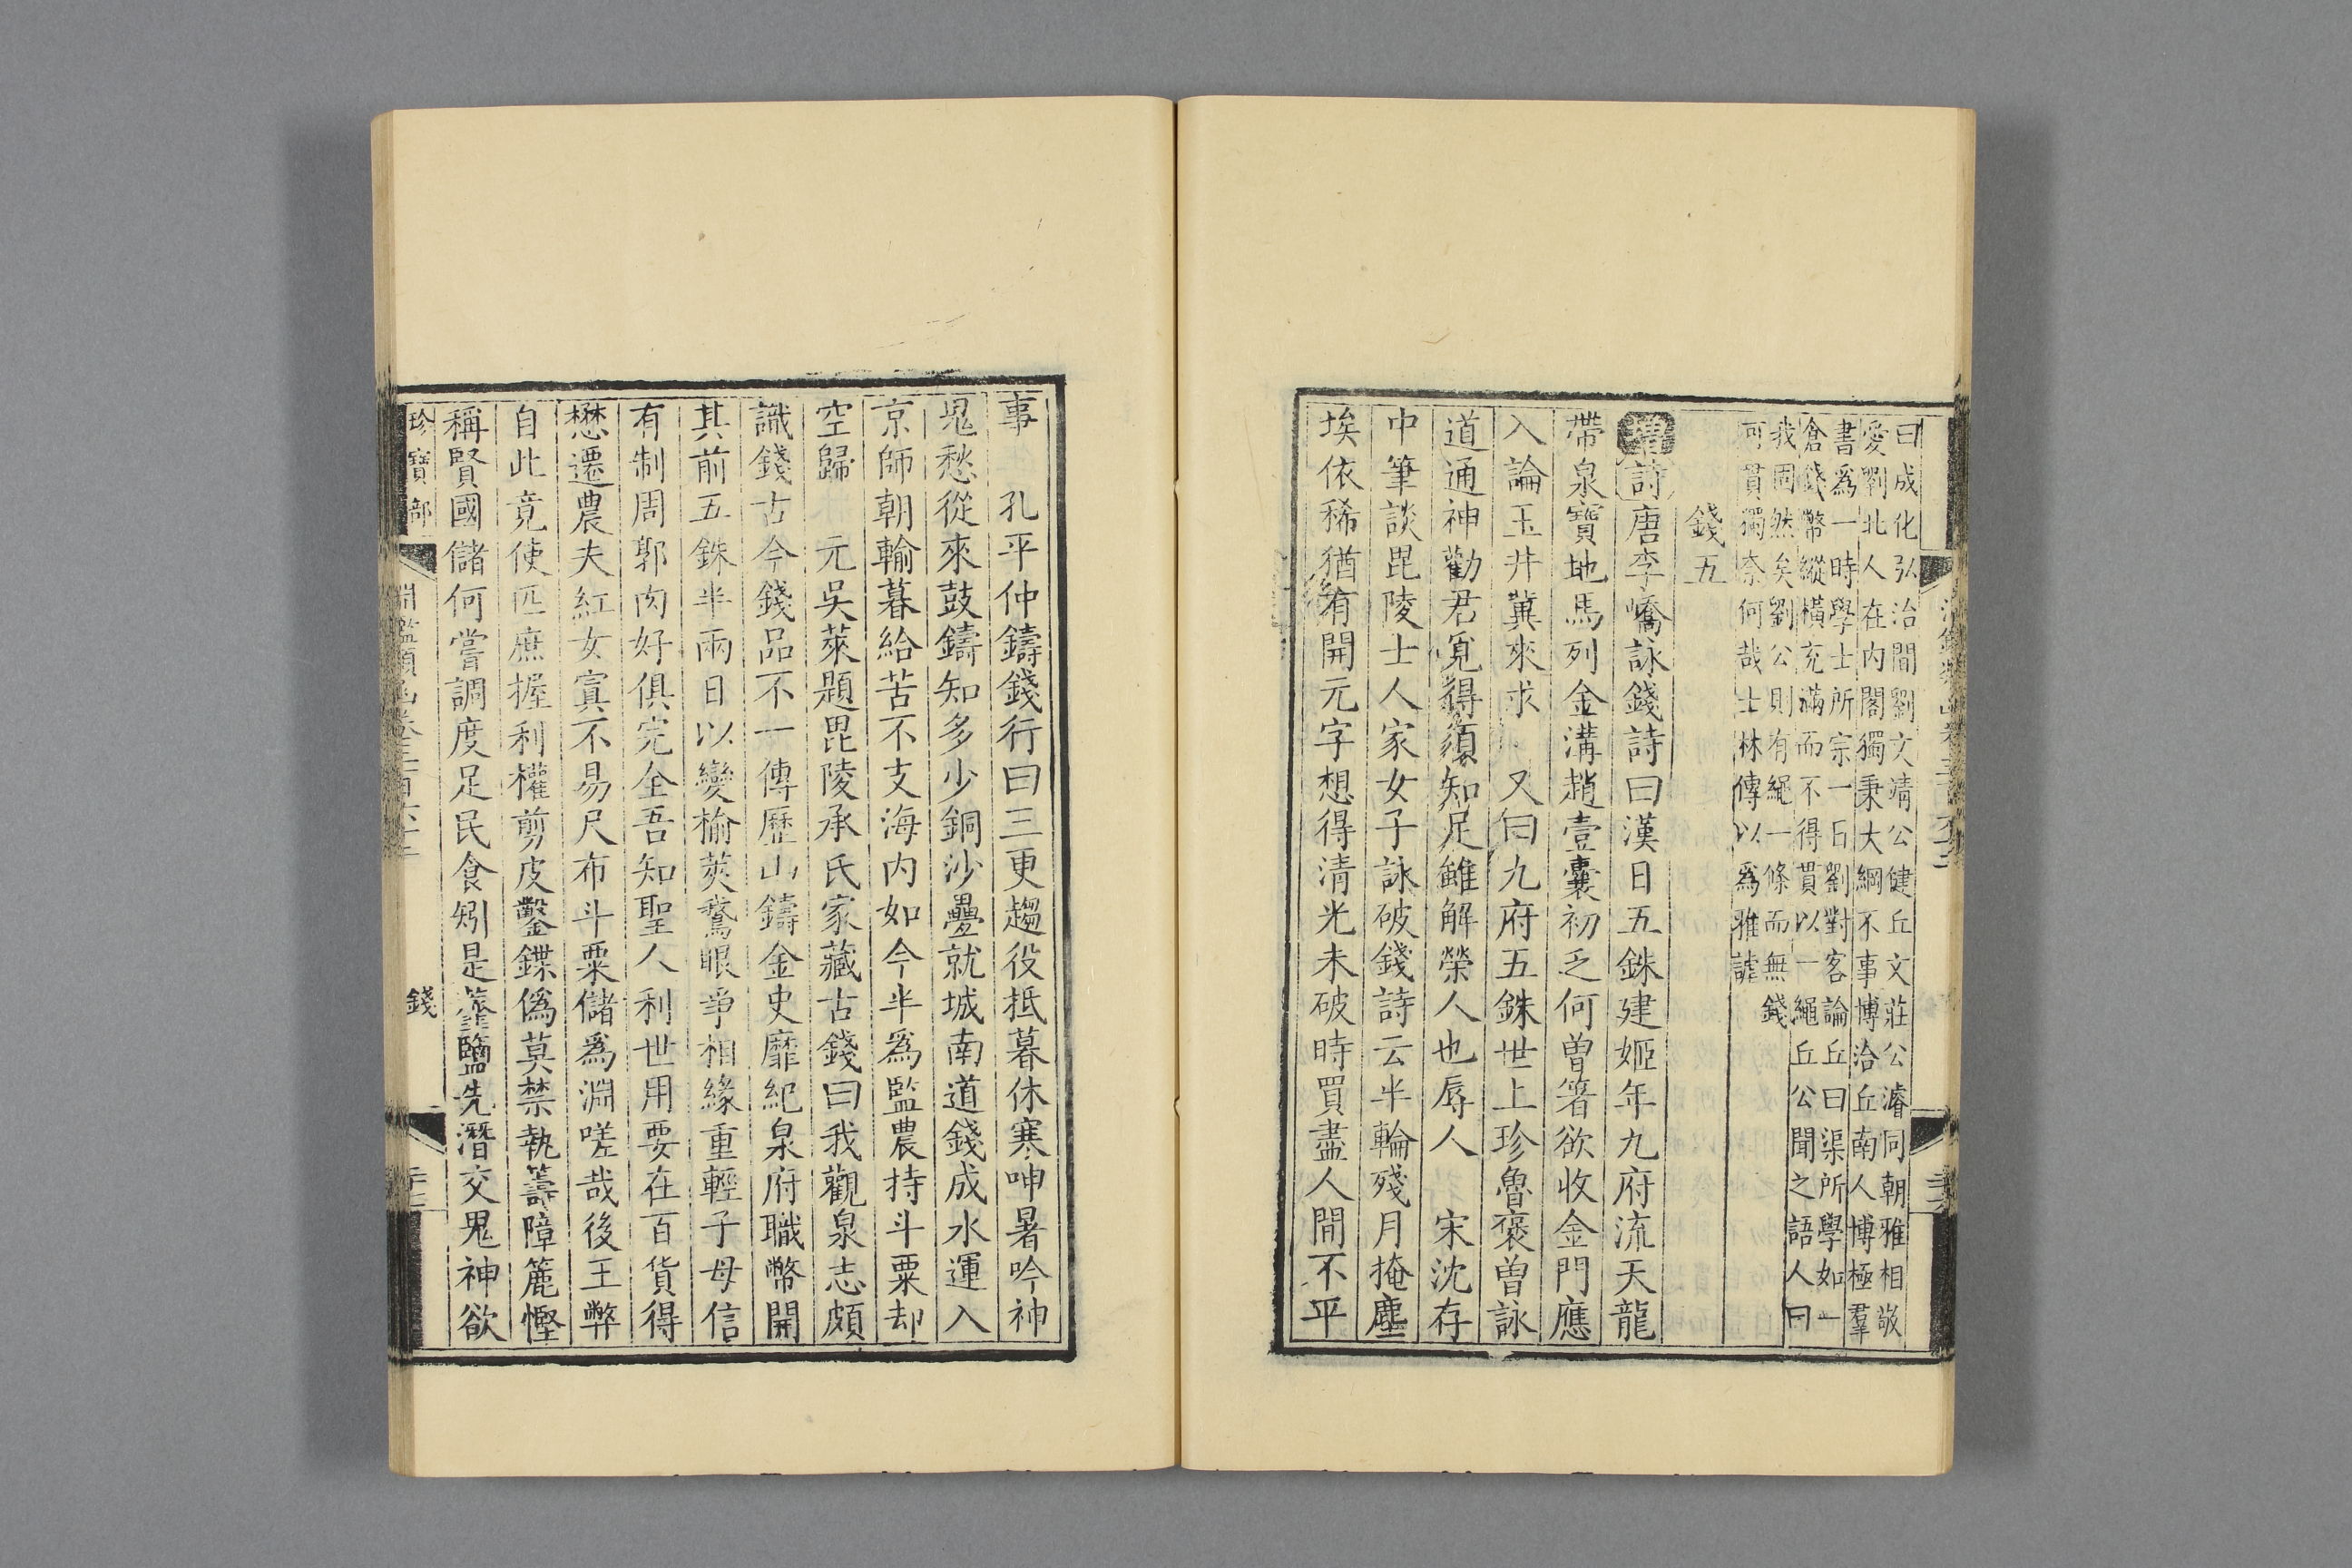 曰成化弘治間劉文靖公健丘文莊公濬同朝雅相敬
愛劉北人在內閣獨秉大綱不事博洽丘南人博極羣
書爲一時學士所宗一日劉對客論丘曰渠所學如一
倉錢幣縱橫充滿而不得貫以一繩丘公聞之語人曰
我固然矣劉公則有繩一條而無錢
可貫獨奈何哉士林傳以爲雅謔
錢五
詩唐李嶠詠錢詩曰漢日五銖建姬年九府流天龍
帶泉寶地馬列金溝趙壹囊初乏何曾箸欲收金門應
入論玉井冀來求 又曰九府五銖世上珍魯褒曾詠
道通神勸君覓得須知足雖解榮人也辱人 宋沈存
中筆談毘陵士人家女子詠破錢詩云半輪殘月掩塵
埃依稀猶有開元字想得清光未破時買盡人間不平
事 孔平仲鑄錢行曰三更趨役抵暮休寒呻暑吟神
鬼愁從來鼓鑄知多少銅沙疊就城南道錢成水運入
京師朝輸暮給苦不支海內如今半爲監農持斗粟却
空歸 元吳萊題毘陵承氏家藏古錢曰我觀泉志頗
識錢古今錢品不一傳歷山鑄金史靡紀泉府職幣開
其前五銖半兩日以變榆莢鵞眼爭相緣重輕子母信
有制周郭肉好俱完全吾知聖人利世用要在百貨得
懋遷農夫紅女寘不易尺布斗粟儲爲淵嗟哉後王弊
自此竟使匹庶握利權剪皮鑿鍱僞莫禁執籌障簏慳
稱賢國儲何嘗調度足民食矧是虀鹽先潛交鬼神欲
珍寶部
淵鑑類函卷三百六十二
錢